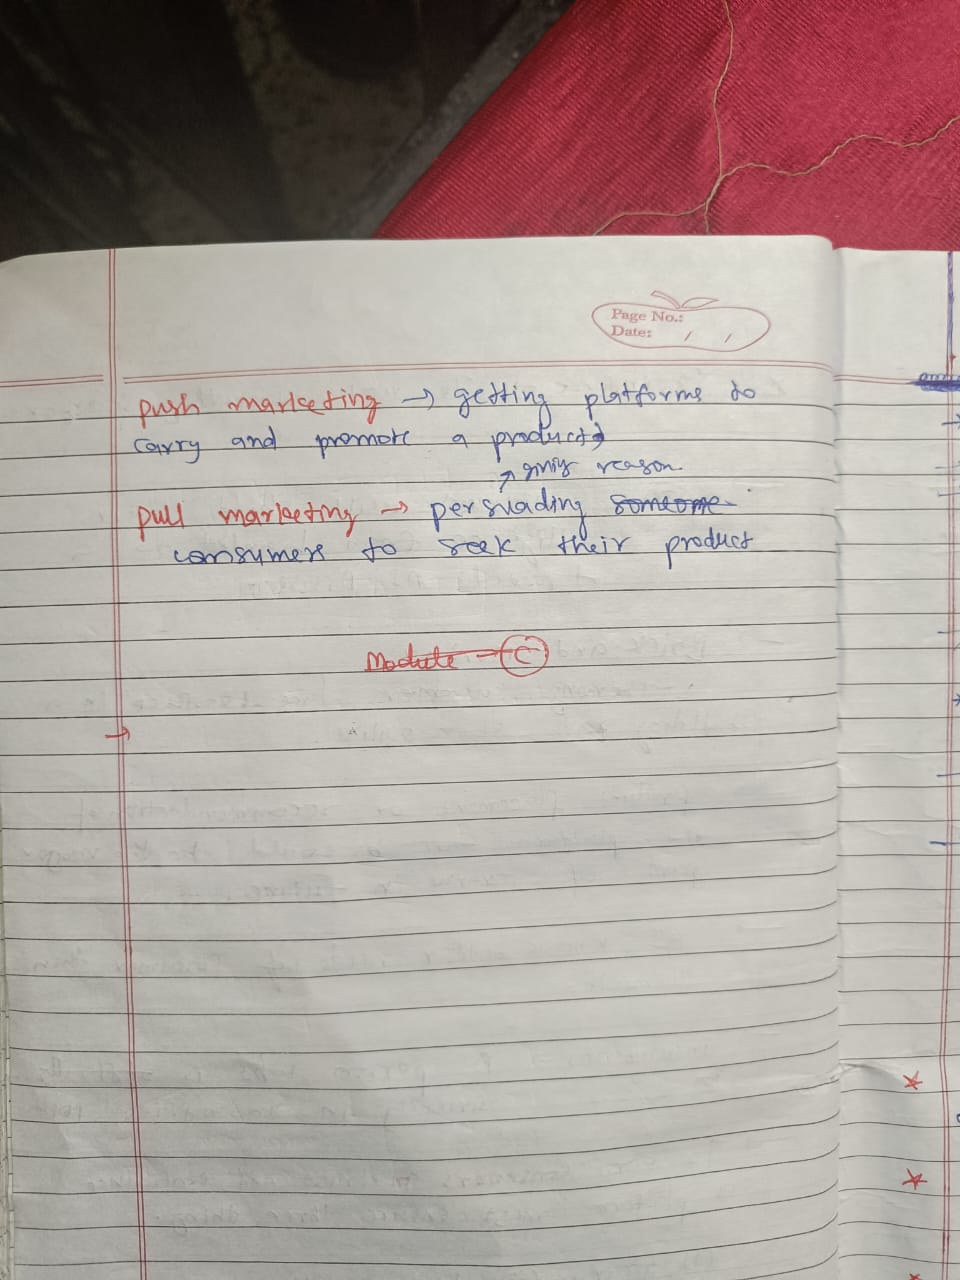 Page No.:
Date: / /
push marketing → getting platforms to
carry and promote a product
↗ reason
pull marketing → persuading someone
consumers to seek their product
Module - C